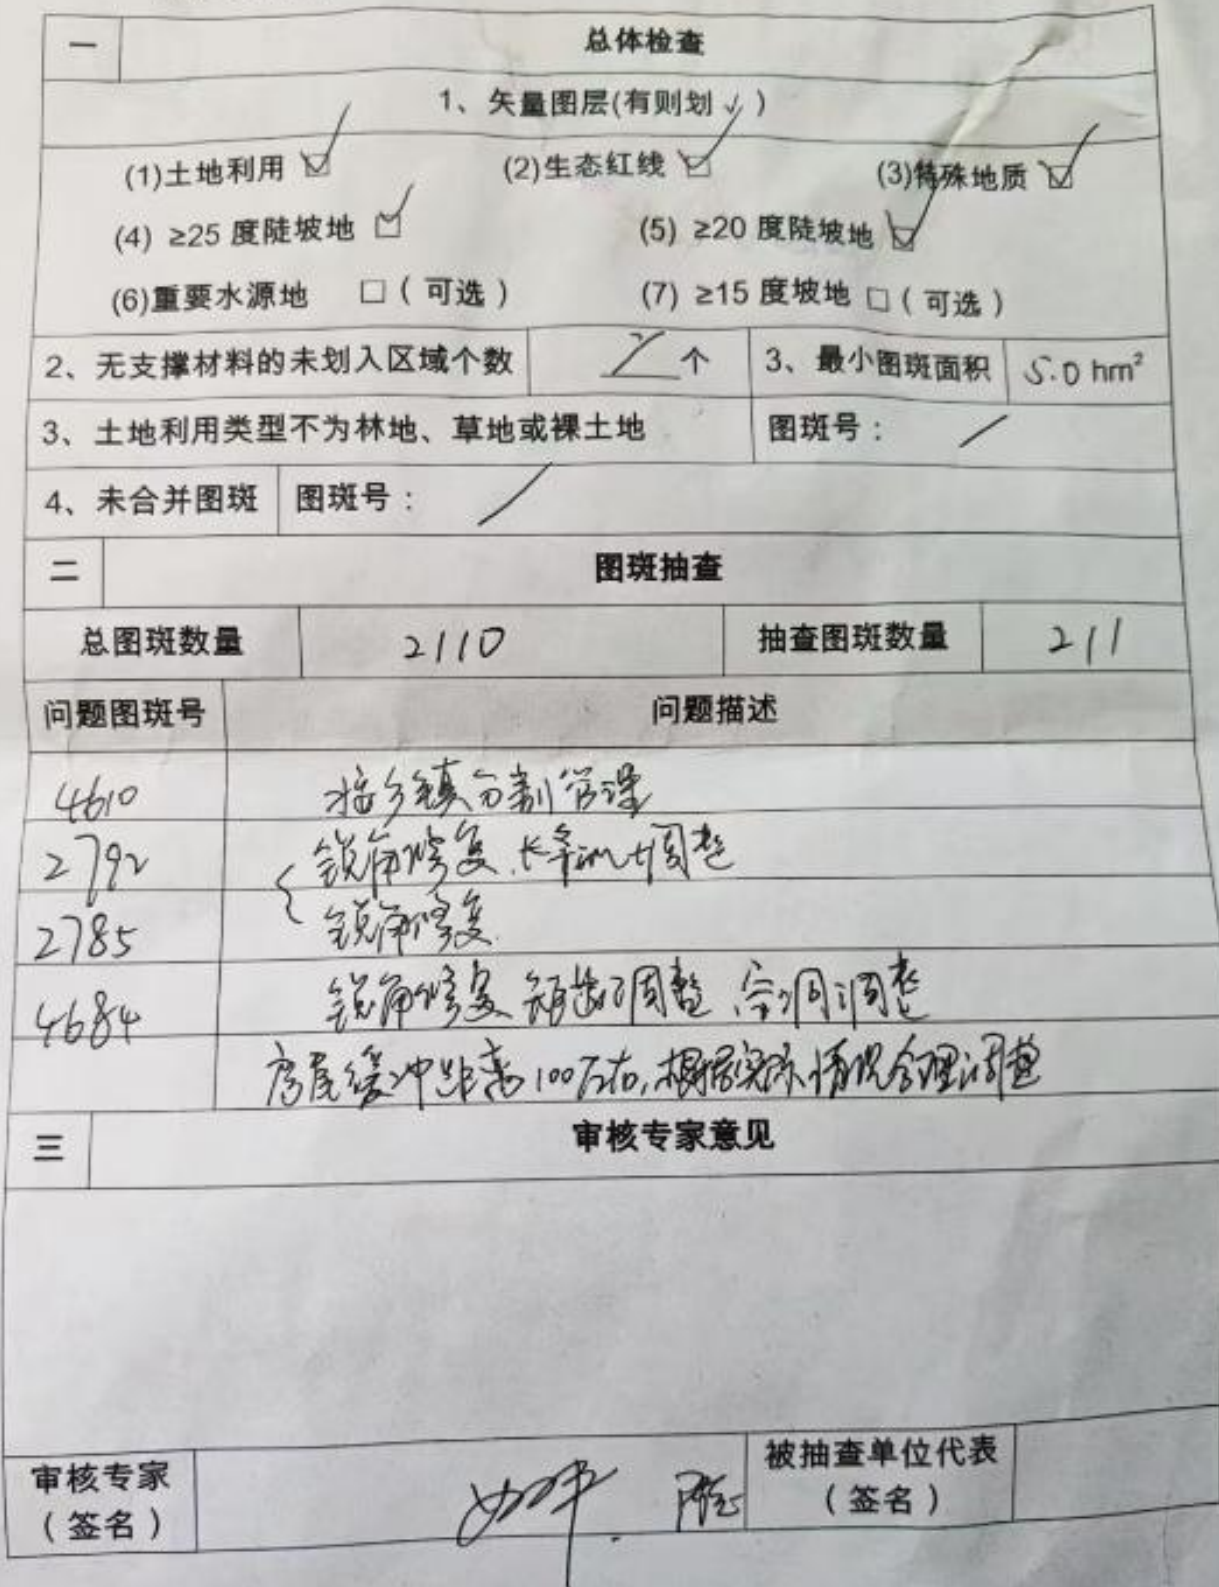 一 总体检查
1、矢量图层(有则划✓)
(1)土地利用 ☑ (2)生态红线 ☑ (3)特殊地质 ☑
(4) ≥25 度陡坡地 ☑ (5) ≥20 度陡坡地 ☑
(6)重要水源地 □(可选) (7) ≥15 度坡地 □(可选)
2、无支撑材料的未划入区域个数 个 3、最小图斑面积 5.0 hm²
3、土地利用类型不为林地、草地或裸土地 图斑号: /
4、未合并图斑 图斑号: /
二 图斑抽查
总图斑数量 2110 抽查图斑数量 211
问题图斑号 问题描述
4610 按乡镇分割管理
2792 锐角修复、长条 调整
2785 锐角修复
4684 锐角修复、锯齿调整、空洞调整
房屋缓冲距离100左右,根据实际情况合理调整
三 审核专家意见
审核专家 被抽查单位代表
(签名) (签名)